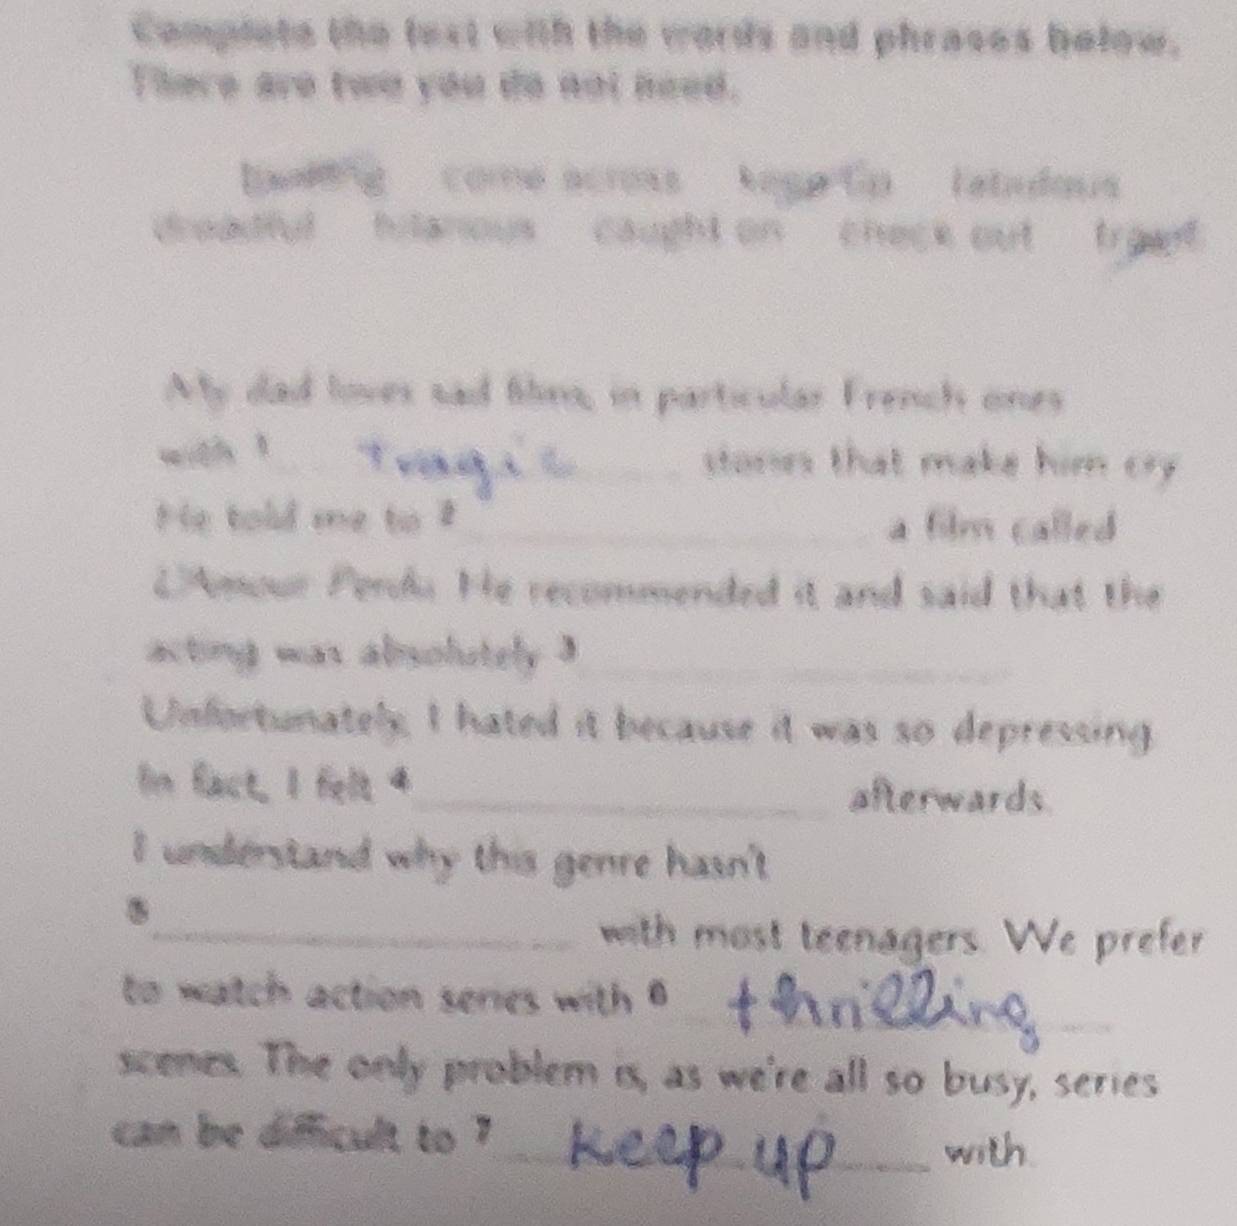 Complete the text with the words and phrases below.
There are two you do not need.
come across keep up fabulous
dreadful hilarious caught on check out
My dad loves sad films, in particular French ones
with 1 tragic stories that make him cry
He told me to 2 a film called
L'Amour Perdu. He recommended it and said that the
acting was absolutely 3
Unfortunately, I hated it because it was so depressing
In fact, I felt 4 afterwards.
I understand why this genre hasn't
5 with most teenagers. We prefer
to watch action series with 6 thrilling
scenes. The only problem is, as we're all so busy, series
can be difficult to 7 keep up with.